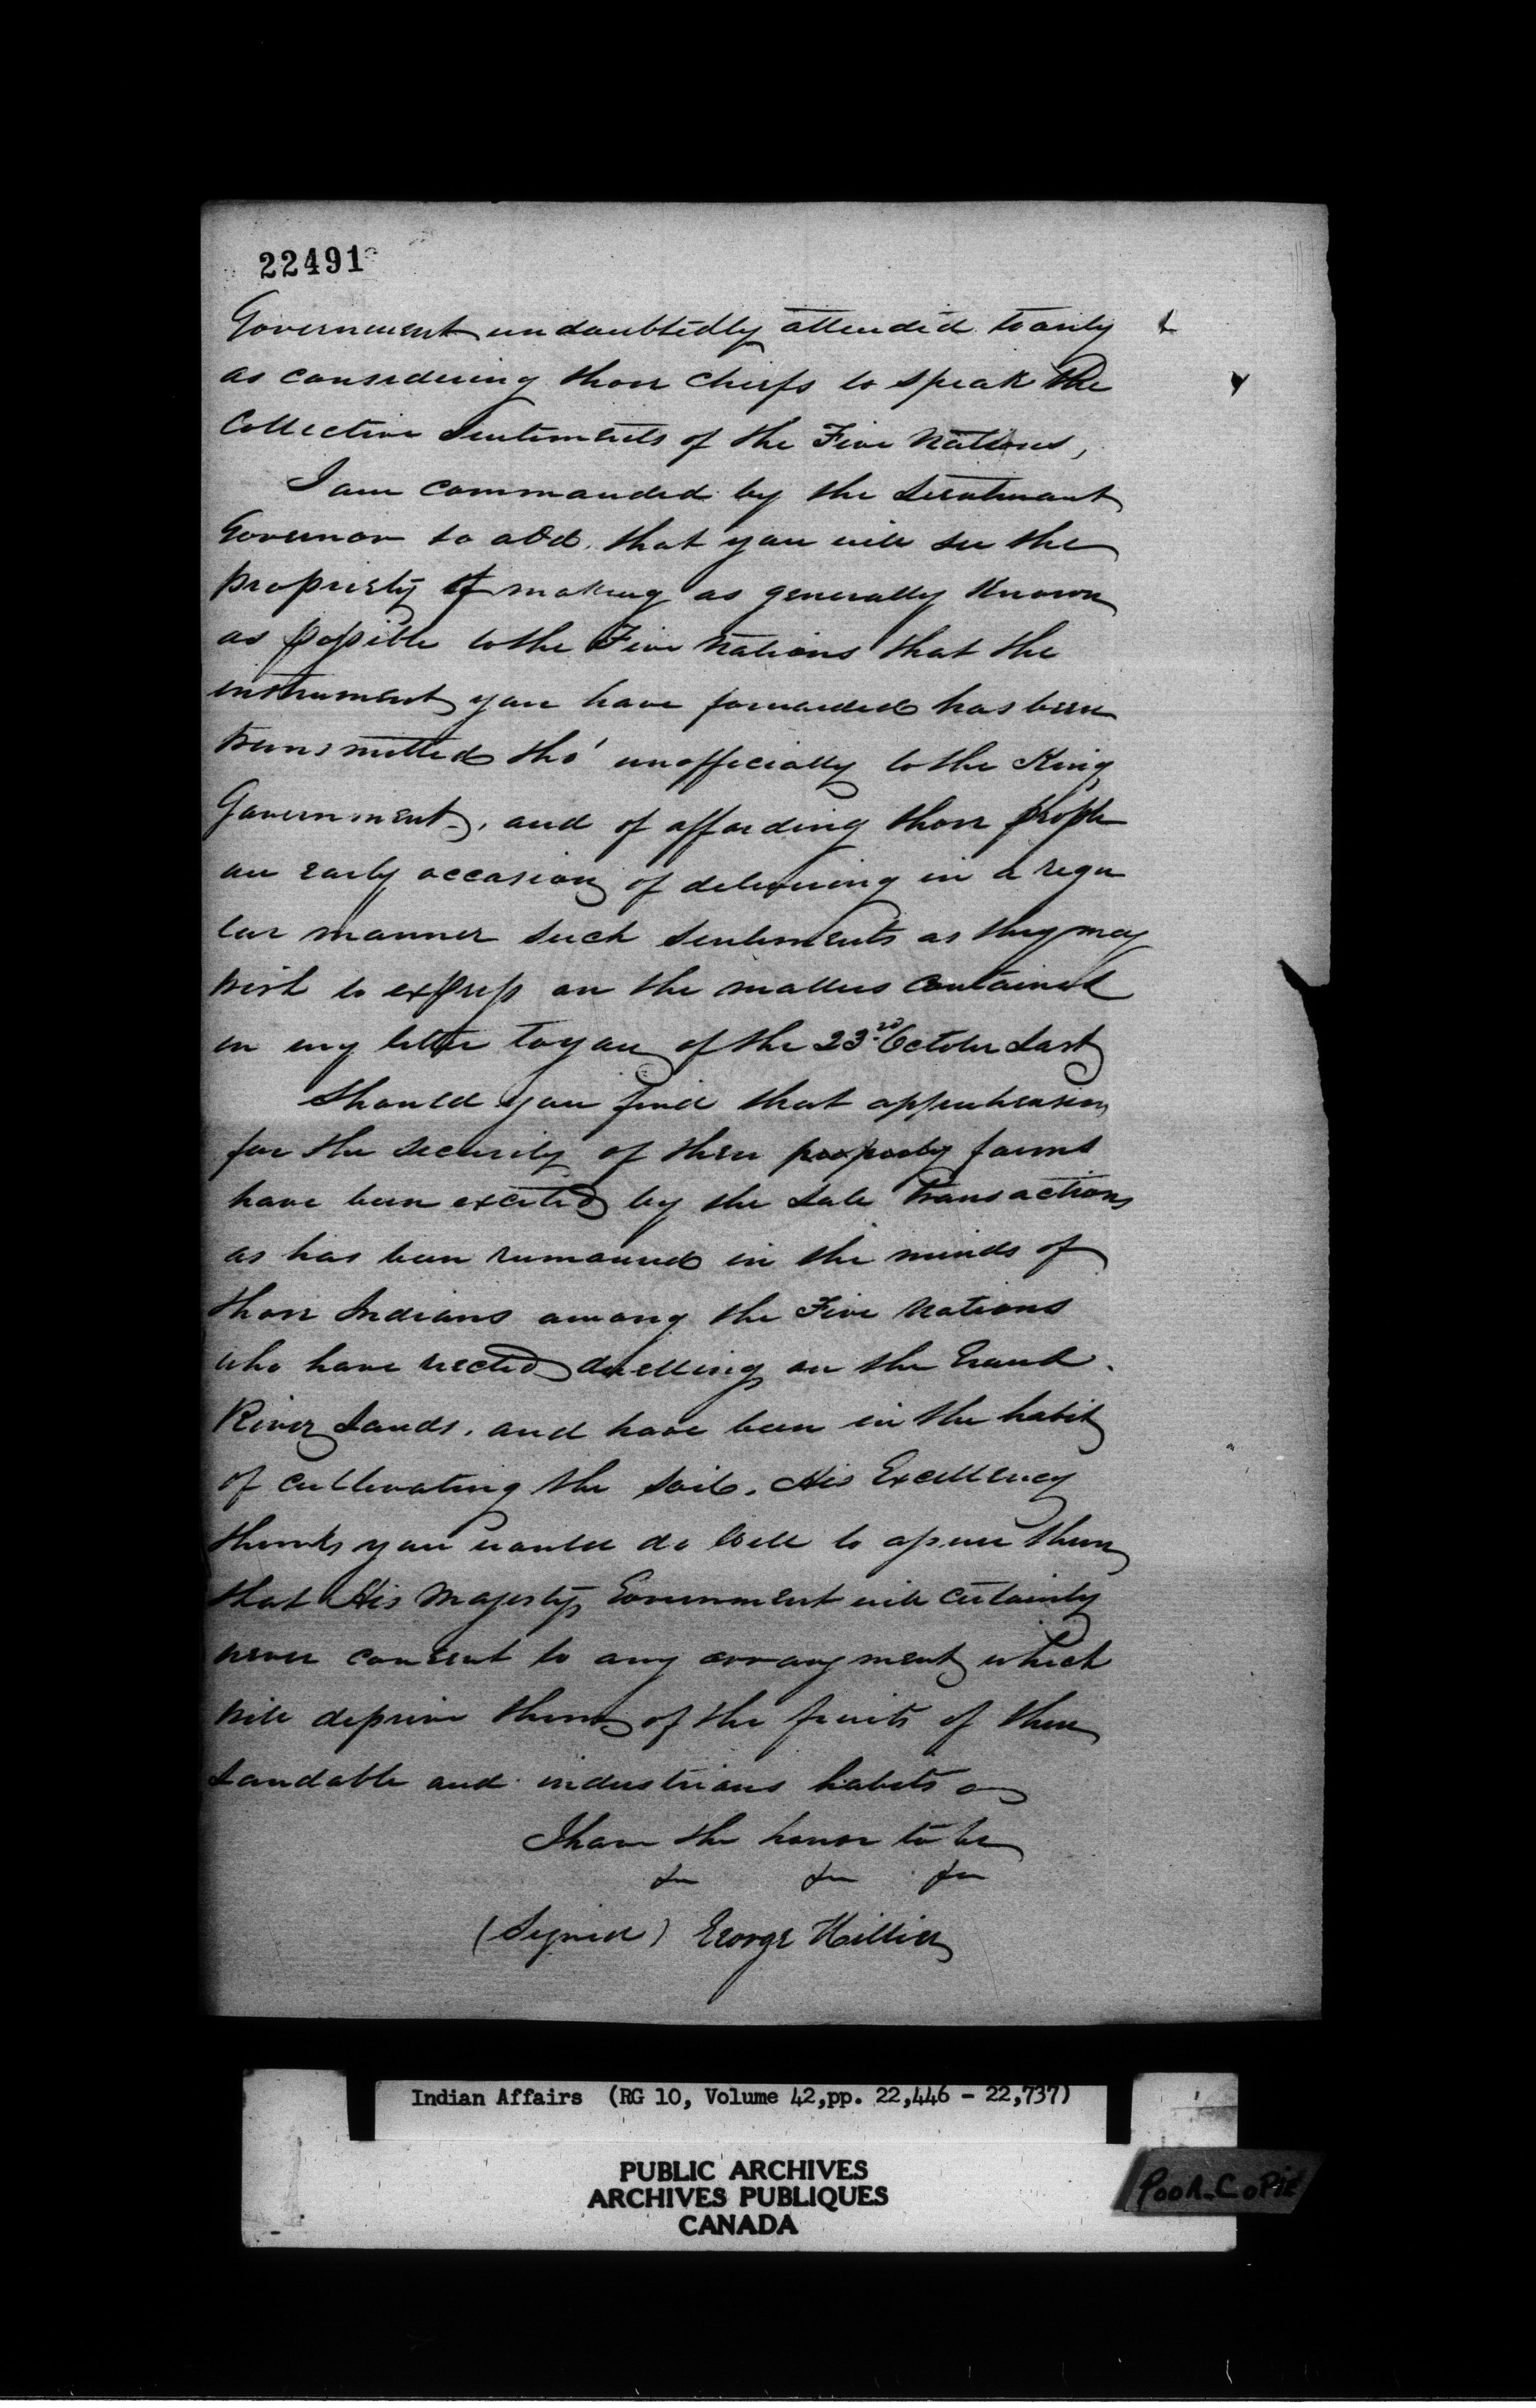 22491
Government undoubtedly attended to only
as considering those chiefs to speak the
Collective Sentiments of the Five Nations,
I am commanded by the Lieutenant
Governor to add, that you will see the
propriety of making as generally known
as possible to the Five Nations that the
instrument you have forwarded has been
transmitted tho' unofficially to the King,
Government, and of affording those people
an early occasion of delivering in a regu
lar manner such sentiments as they may
wish to express on the matters contained
in my letter to you of the 23rd October last
Should you find that apprehension
for the security of their property farms
have been excited by the late transactions
as has been rumoured in the minds of
those Indians among the Five Nations
who have erected dwellings on the Grand
River Lands, and have been in the habit
of cultivating the soil. His Excellency
thinks you would do well to assure them
that His Majestys Government will certainly
never consent to any arrangment which
will deprive them of the fruits of their
laudable and industrious habits
I have the honor to be
&c &c &c
(Signed) George Hillier
Indian Affairs (RG 10, Volume 42, pp. 22,446 - 22,737)
PUBLIC ARCHIVES
ARCHIVES PUBLIQUES
CANADA
POOR COPIE